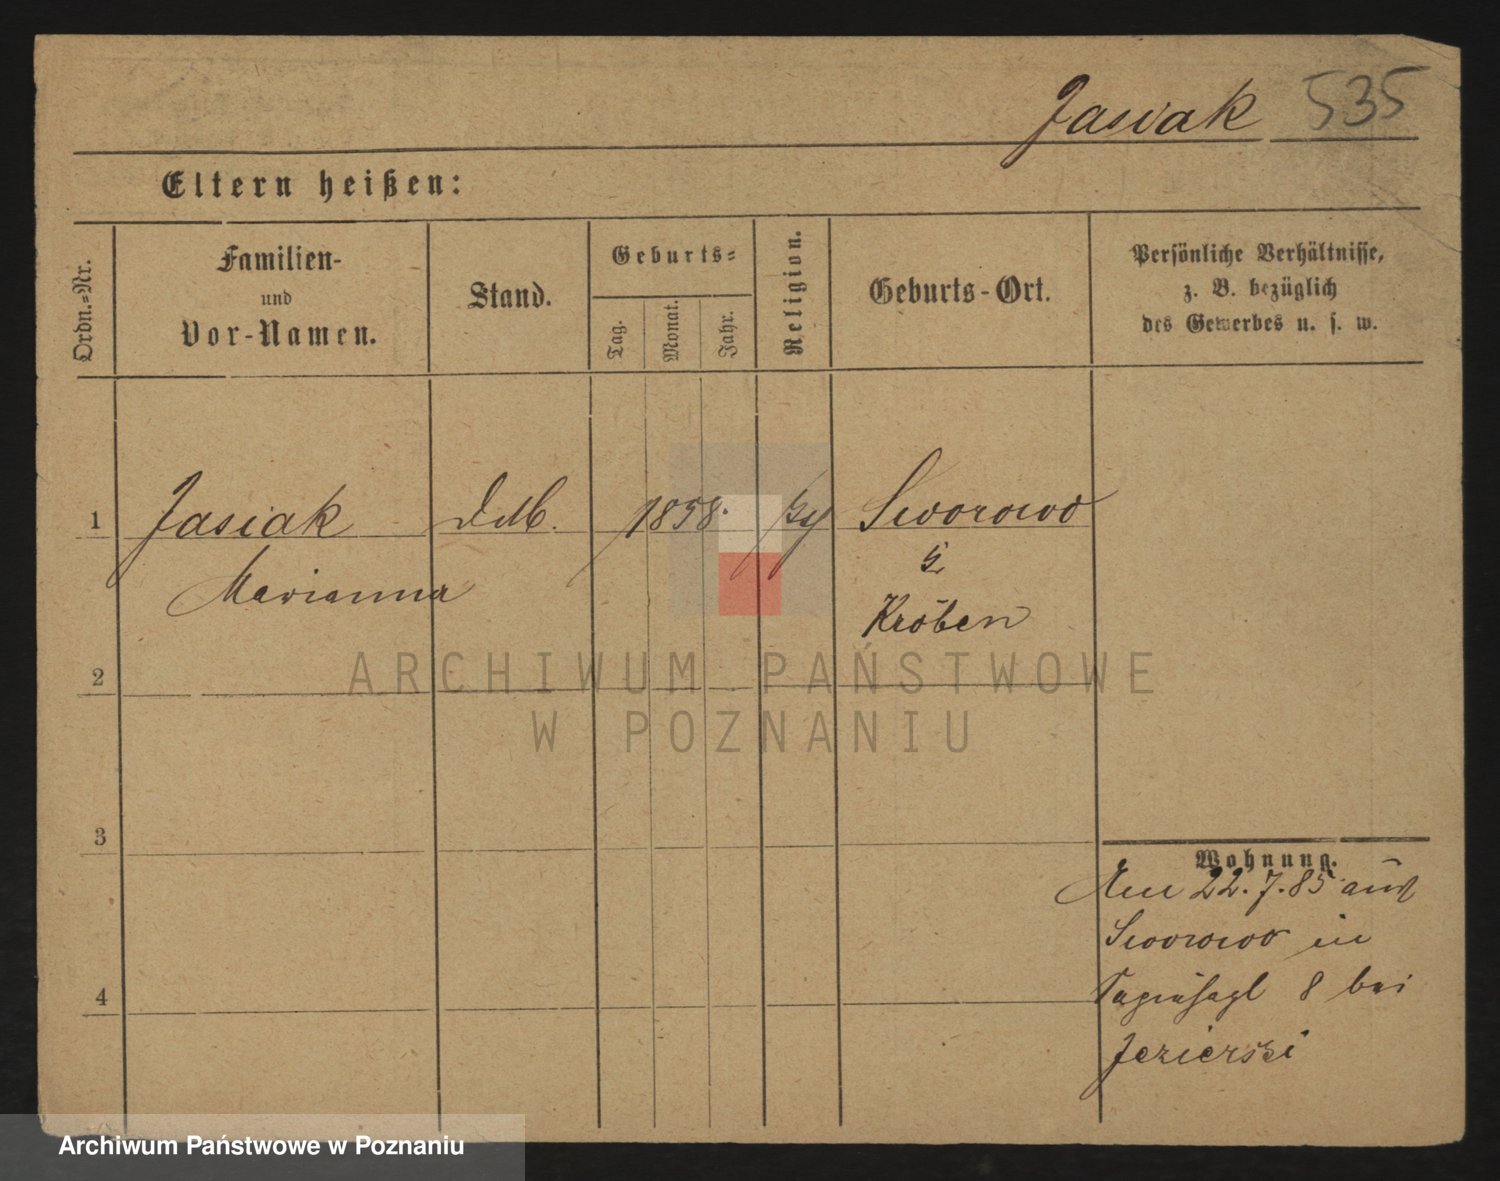 Jasiak 535
Eltern heißen:
Ordn.=Nr.
Familien-
und
Vor-Namen.
Stand.
Geburts=
Tag.
Monat.
Jahr.
Religion.
Geburts-Ort.
Persönliche Verhältnisse,
z. B. bezüglich
des Gewerbes u. s. w.
1 Jasiak 1858. Sworowo
Marianna
Kröben
2
3
4
Wohnung.
Am 22.7.85 aus
Sworowo in
8 bei
Jezierski
ARCHIWUM PAŃSTWOWE
W POZNANIU
Archiwum Państwowe w Poznaniu